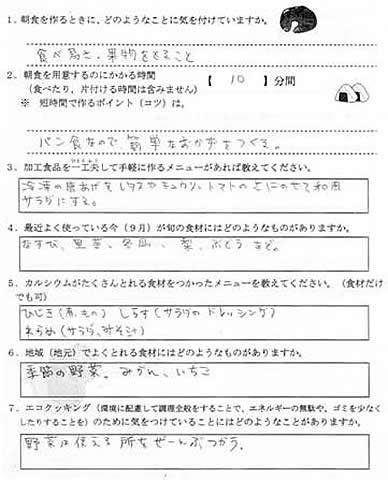 1. 朝食を作るときに、どのようなことに気を付けていますか。
食べ易さ、果物をとること
2. 朝食を用意するのにかかる時間 【 10 】分間
(食べたり、片付ける時間は含みません)
※ 短時間で作るポイント(コツ)は。
パン食なので、簡単なおかずをつくる。
3. 加工食品を一工夫して手軽に作るメニューがあれば教えてください。
冷凍の唐あげをレタスやキュウリ、トマトの上にのせて和風
サラダにする。
4. 最近よく使っている今(9月)が旬の食材にはどのようなものがありますか。
なすび、里芋、冬瓜、 梨、ぶどう など。
5. カルシウムがたくさんとれる食材をつかったメニューを教えてください。(食材だけ
でも可)
ひじき(煮もの) しらす(サラダのドレッシング)
わかめ(サラダ、みそ汁)
6. 地域(地元)でよくとれる食材にはどのようなものがありますか。
季節の野菜、みかん、いちご
7. エコクッキング(環境に配慮して調理全般をすることで、エネルギーの無駄や、ゴミを少なく
したりすることを)のために気をつけていることにはどのようなことがありますか。
野菜は使える所をぜーんぶつかう。